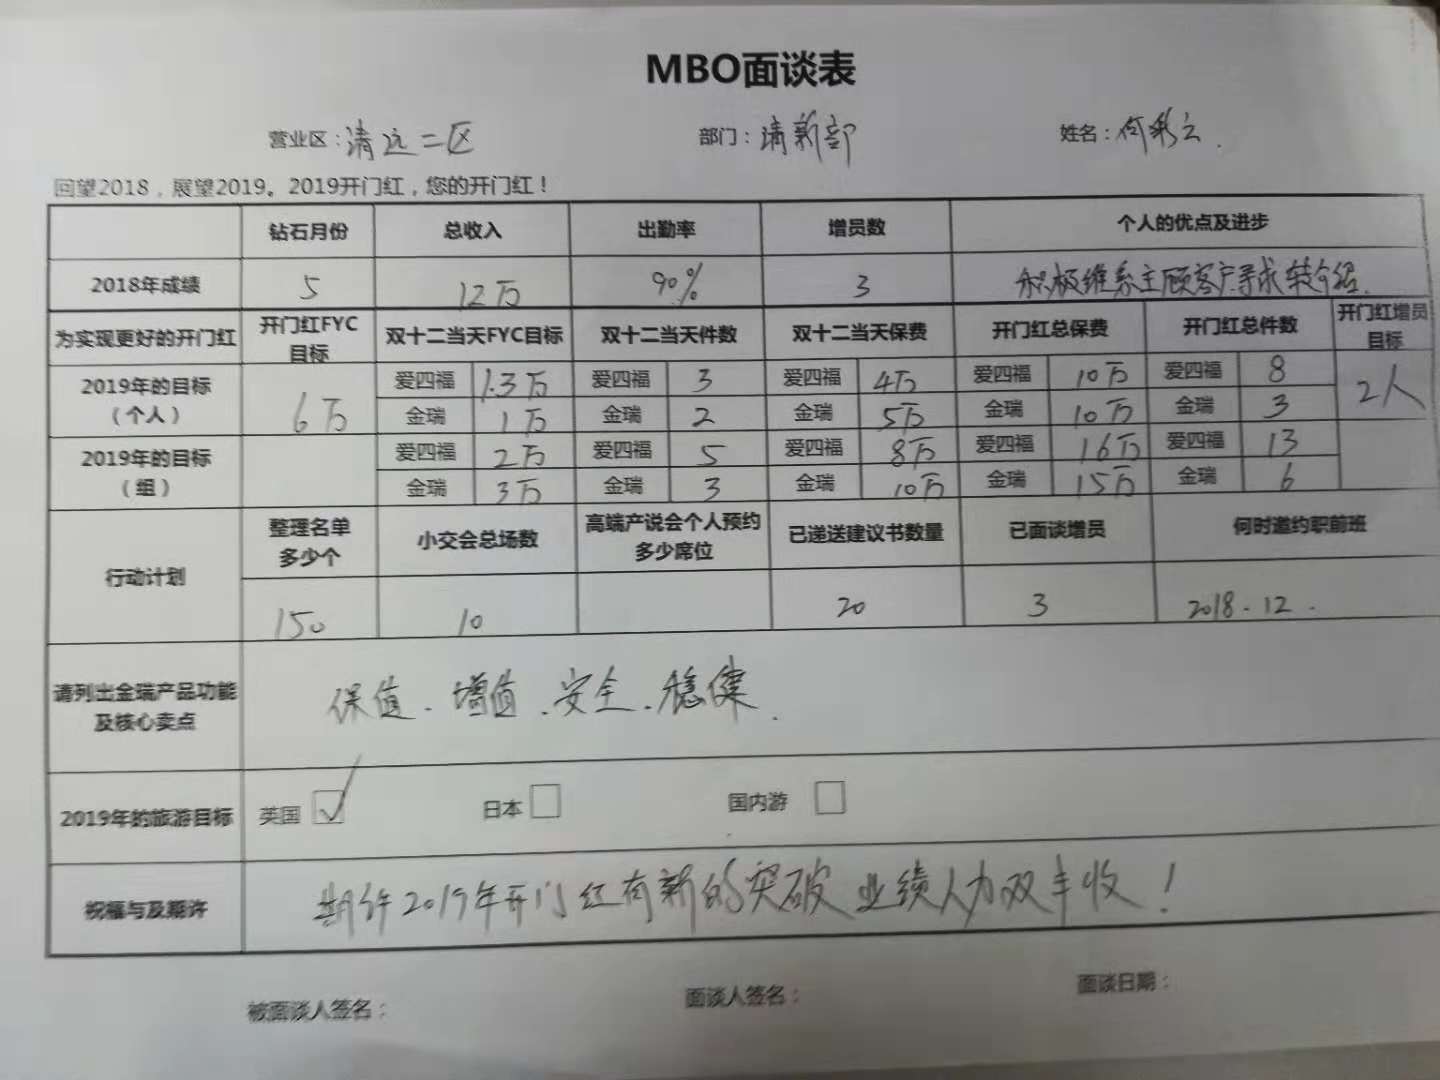 MBO面谈表
营业区：清远二区 部门：清新部 姓名：何彩云.
回望2018，展望2019。2019开门红，您的开门红！
钻石月份 总收入 出勤率 增员数 个人的优点及进步
2018年成绩 5 12万 90% 3 积极维系主顾客户寻求转介绍.
为实现更好的开门红 开门红FYC目标 双十二当天FYC目标 双十二当天件数 双十二当天保费 开门红总保费 开门红总件数 开门红增员目标
2019年的目标（个人） 6万 爱四福 1.3万 爱四福 3 爱四福 4万 爱四福 10万 爱四福 8 2人
金瑞 1万 金瑞 2 金瑞 5万 金瑞 10万 金瑞 3
2019年的目标（组） 爱四福 2万 爱四福 5 爱四福 8万 爱四福 16万 爱四福 13
金瑞 3万 金瑞 3 金瑞 10万 金瑞 15万 金瑞 6
行动计划 整理名单多少个 小交会总场数 高端产说会个人预约多少席位 已递送建议书数量 已面谈增员 何时邀约职前班
150 10 20 3 2018.12.
请列出金瑞产品功能及核心卖点 保值、增值、安全、稳健.
2019年的旅游目标 英国 ☑ 日本 □ 国内游 □
祝福与及期许 期许2019年开门红有新的突破 业绩人力双丰收！
被面谈人签名： 面谈人签名： 面谈日期：